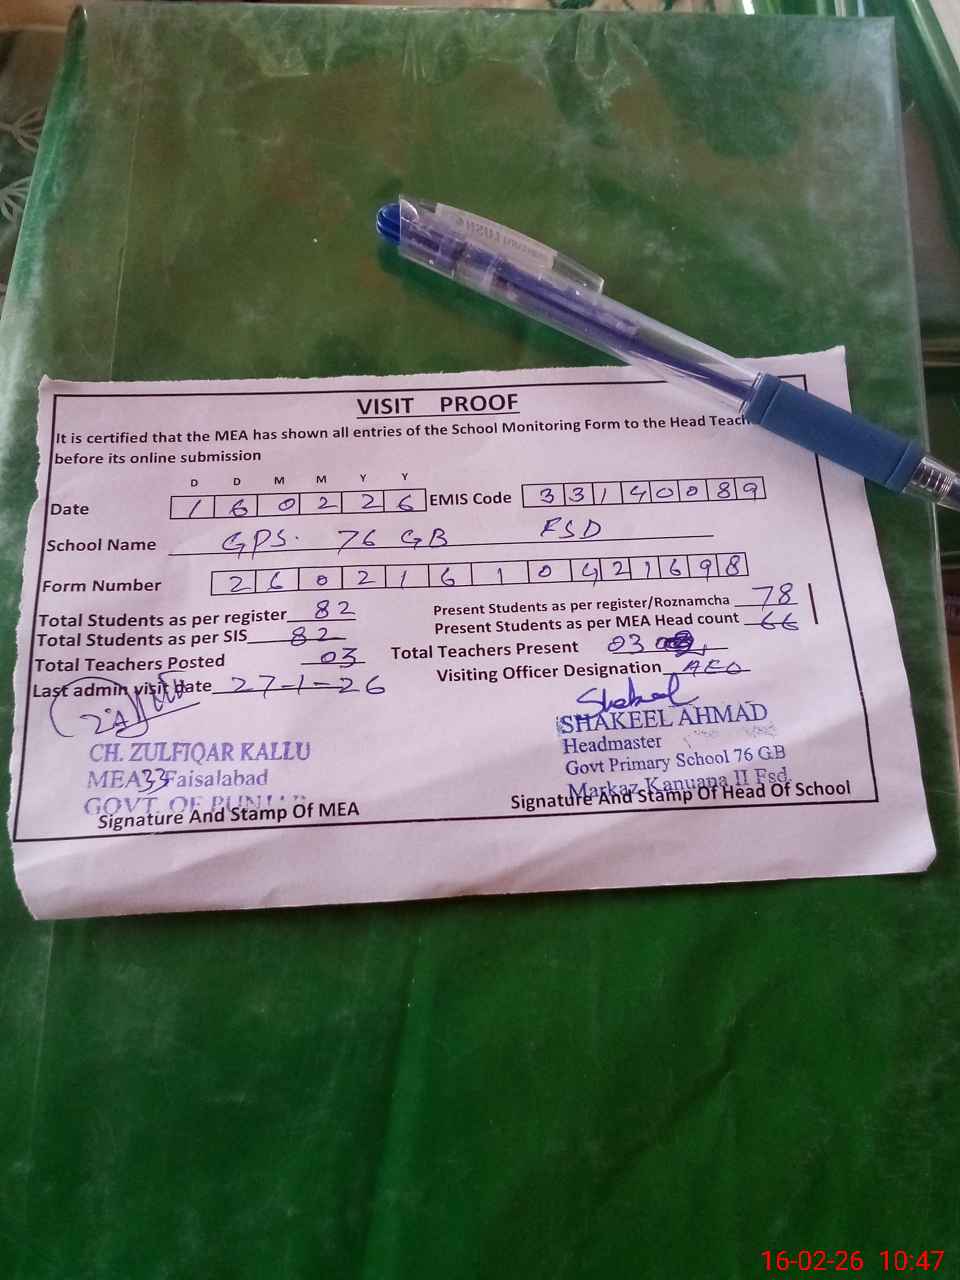 VISIT PROOF
It is certified that the MEA has shown all entries of the School Monitoring Form to the Head Teach
before its online submission
D D M M Y Y
Date 1 6 0 2 2 6 EMIS Code 3 3 1 4 0 0 8 9
School Name GPS. 76 GB FSD
Form Number 2 6 0 2 1 6 1 0 4 2 1 6 9 8
Total Students as per register 82 Present Students as per register/Roznamcha 78
Total Students as per SIS 82 Present Students as per MEA Head count 66
Total Teachers Posted 03 Total Teachers Present 03
Last admin visit date 27-1-26 Visiting Officer Designation AEO
Shakeel
CH. ZULFIQAR KALLU SHAKEEL AHMAD
MEA 33 Faisalabad Headmaster
GOVT. OF PUNJAB Govt Primary School 76 G.B
Markaz Kanuana II Fsd.
Signature And Stamp Of MEA Signature And Stamp Of Head Of School
16-02-26 10:47